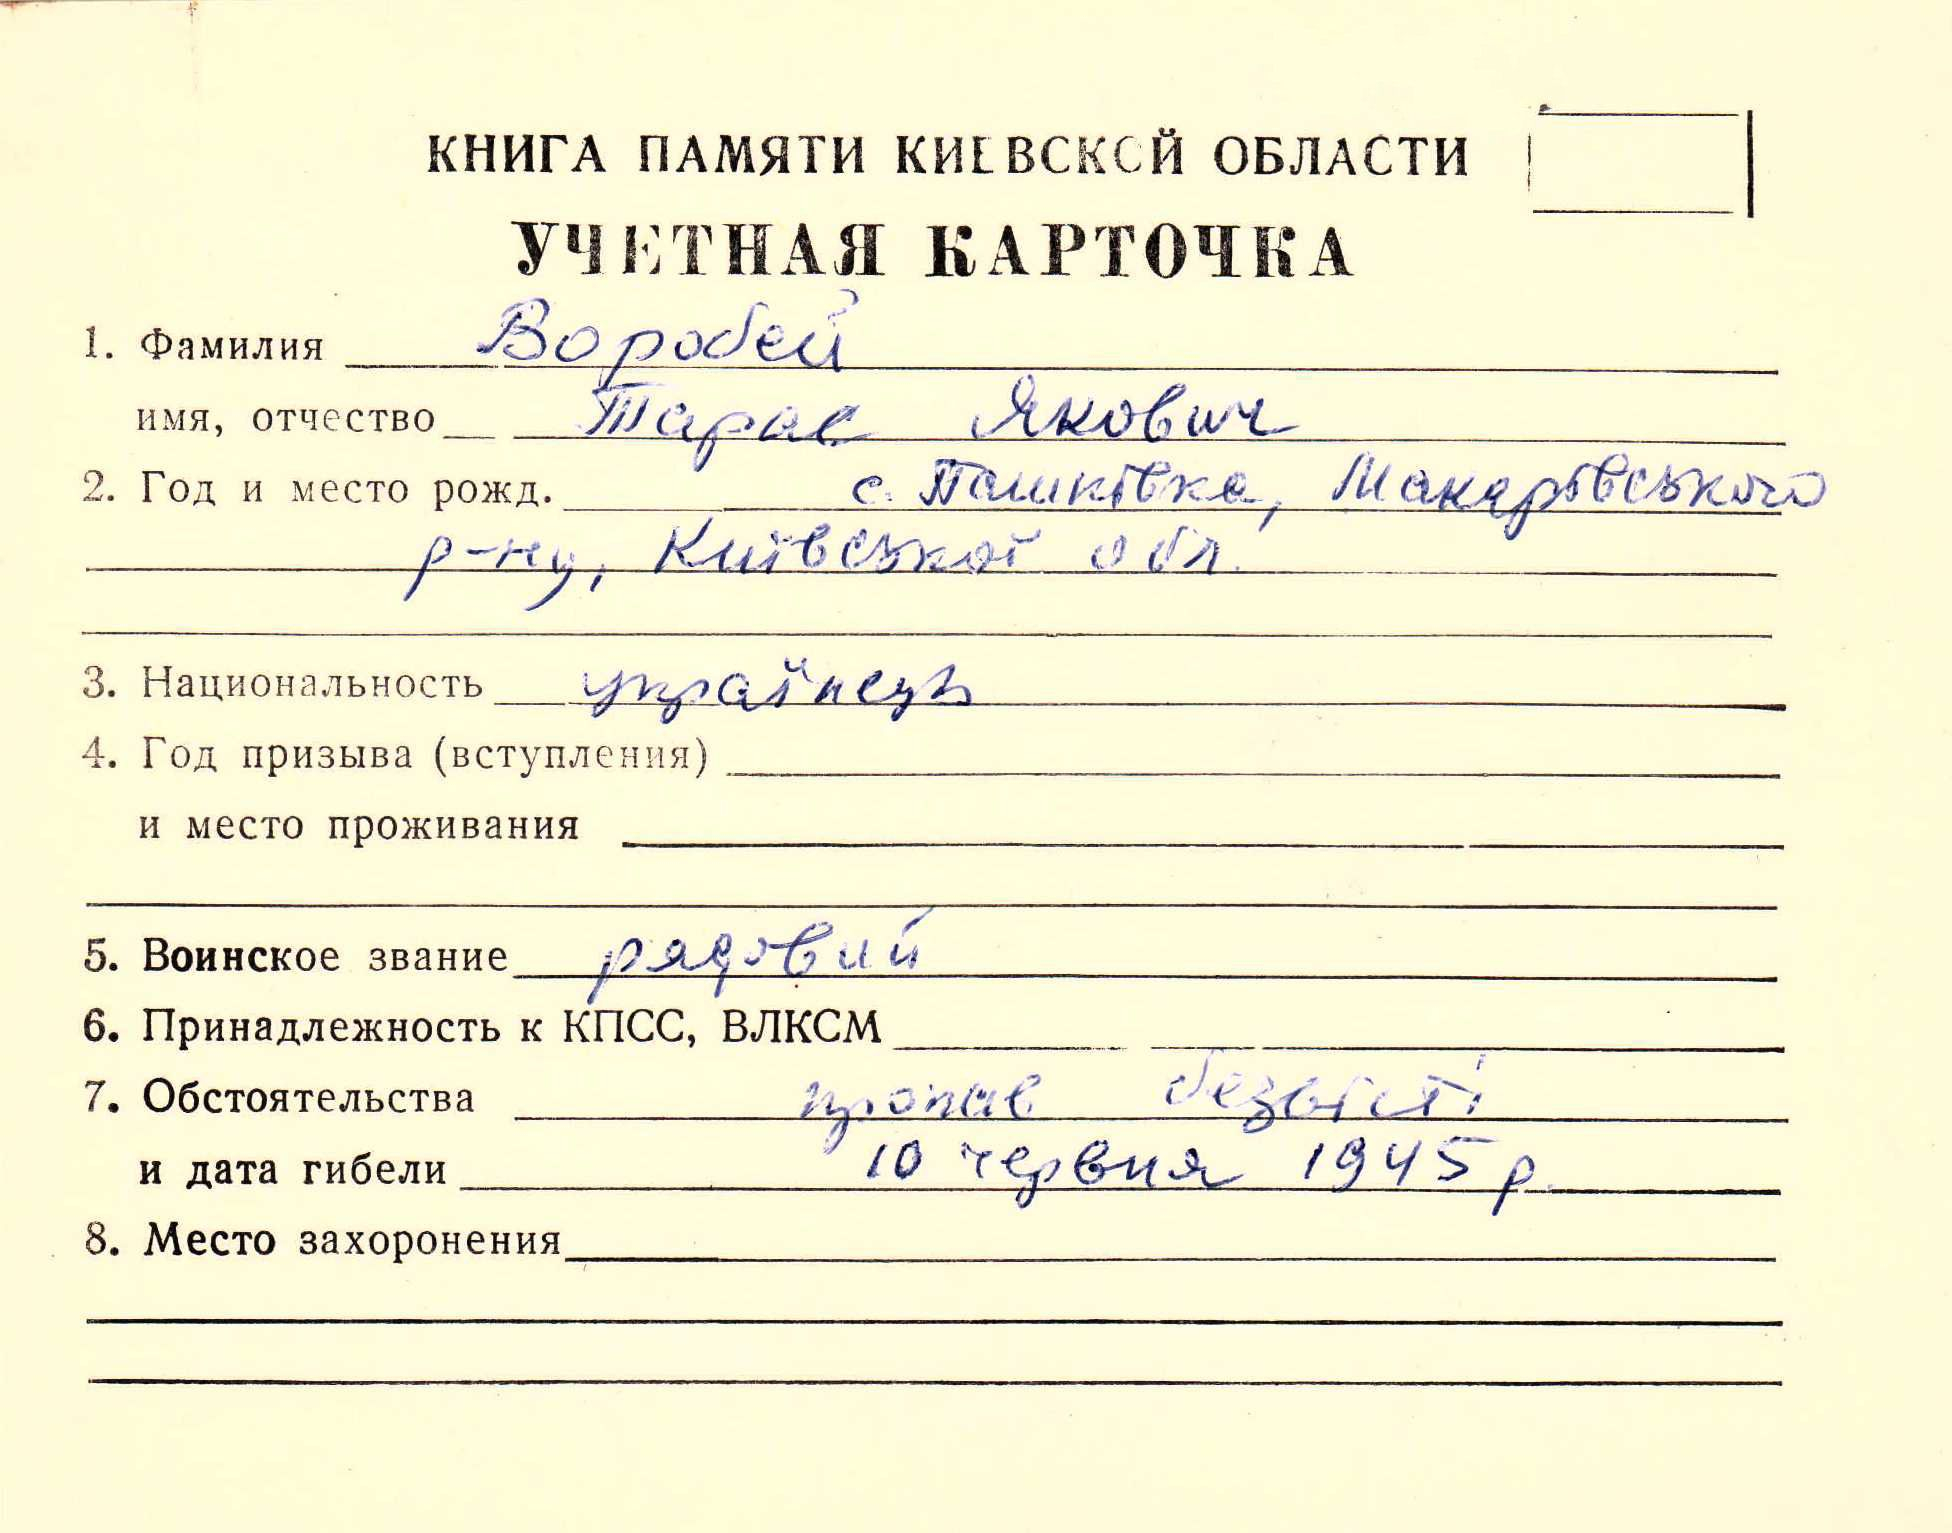 КНИГА ПАМЯТИ КИЕВСКОЙ ОБЛАСТИ
УЧЕТНАЯ КАРТОЧКА
1. Фамилия Воробей
имя, отчество Тарас Якович
2. Год и место рожд. с. Пашківка, Макарівського
р-ну, Київської обл.
3. Национальность українець
4. Год призыва (вступления)
и место проживания
5. Воинское звание рядовий
6. Принадлежность к КПСС, ВЛКСМ
7. Обстоятельства пропав безвісті
и дата гибели 10 червня 1945 р.
8. Место захоронения